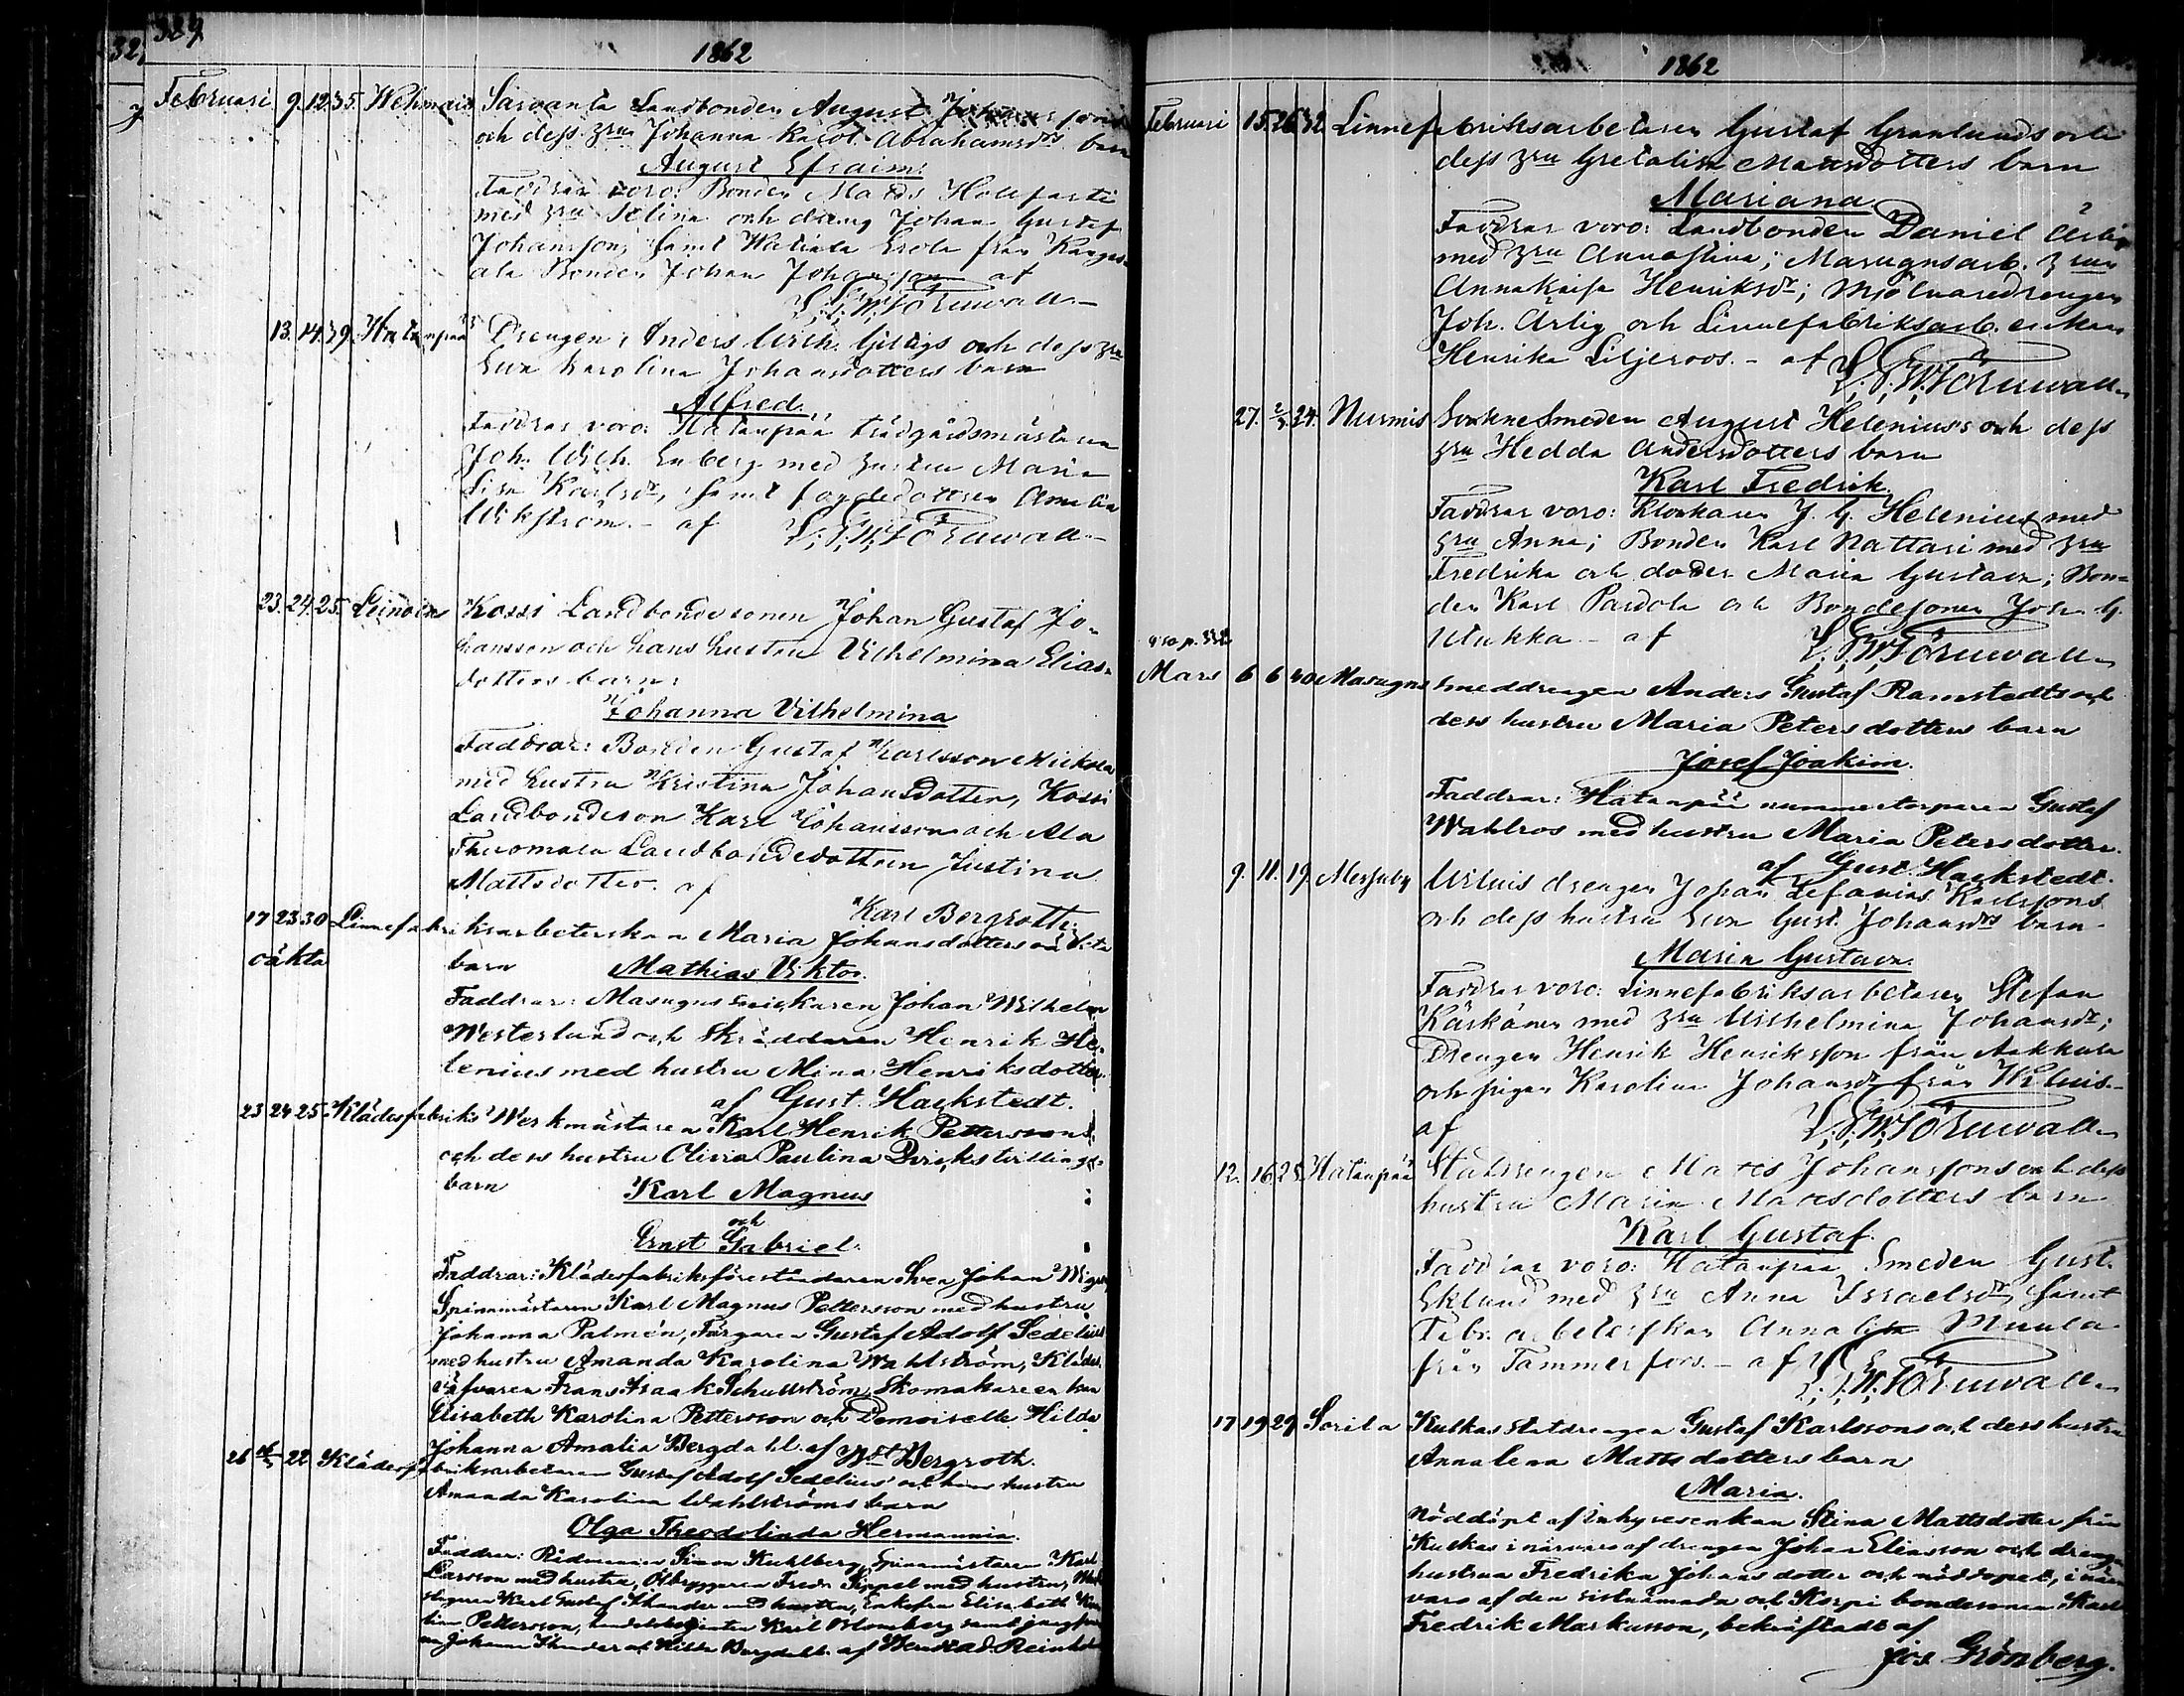 329
1862
Februari 9. 12. 35. Wehmais Sarvanta Landbonden August Johanssons
och dess hru Johanna Karol. Abrahamsdrs barn
August Efraim.
Faddrar voro: Bonden Matts
med hru Selina och dräng Johan Gustaf
Johansson, samt Hatiala Erola från Kangas-
ala Bonden Johan Johansson af
L. W. Törnwall
13. 14. 39. Hatanpää Drengen Anders Wilh. och dess hru
Eva Karolina Johansdotters barn
Alfred.
Faddrar voro: Hatanpää trädgårdsmästaren
Joh. Wilh. Enberg med hustru Maria
Lisa Karlsdr, samt fogdedottren Amalia
Wikström. - af L. W. Törnwall
23. 24. 25. Leinola Kossi Landbondesonen Johan Gustaf Jo-
hansson och hans hustru Vilhelmina Elias-
dotters barn:
Johanna Vilhelmina
Faddrar: Bonden Gustaf Karlsson Mikkola
med hustru Kristina Johansdotter, Kossi
Landbondeson Karl Johansson och Ala
Thuomala Landbondedottren Justina
Mattsdotter. af
Karl Bergroth.
17 23 30 Linnefabriksarbeterskan Maria Johansdotters oäkta
oäkta barn Mathias Viktor.
Faddrar: Masugns Johan Wilhelm
Westerlund och Skräddaren Henrik He-
lenius med hustru Mina Henriksdotter.
af Gust. Hackstedt.
23 24 25 Klädesfabriks Werkmästaren Karl Henrik Petterssons
och dess hustru Olivia Paulina Diriks tvillinge-
barn Karl Magnus
och
Ernst Gabriel.
Faddrar: Klädesfabriksföreståndaren Sven Johan
Spinnmästaren Karl Magnus Pettersson med hustru
Johanna Palmén, Färgaren Gustaf Adolf Sedelius
med hustru Amanda Karolina Wahlström, Klädes-
väfvaren Frans Isaak Schullström, Skomakareenkan
Elisabeth Karolina Pettersson och Demoiselle Hilda
Johanna Amalia Bergdahl. af Bergroth.
26 22 Klädesfabriksarbetaren Gustaf Adolf Sedelius och hans hustru
Amanda Karolina Wahlströms barn
Olga Theodolinda Hermannia.
Faddrar: Simon Kuhlberg, Spinnmästaren Karl
Larsson med hustru, Ölbryggaren Fredr. Sippel med hustru,
Karl Gustaf Thander med hustru, Enkefru Elisabeth
Pettersson, Karl Blomberg samt
Johanna Thander och Hilda Bergdahl. af
1862
Februari 15. 26. 32. Linnefabriksarbetaren Gustaf Granlunds och
dess hru Greta Lisa Mattsdotters barn
Mariana
Faddrar voro: Landbonden Daniel Ärlig
med hru Anna Stina; Masugnsarb. hrun
Anna Kaisa Henriksdr; Mjölnaredrengen
Joh. Ärlig och Linnefabriksarb. enkan
Henrika Liljeroos. - af L. W. Törnwall
27. 2/3 24. Nurmis Sockne Smeden August Helenius's och dess
hru Hedda Andersdotters barn
Karl Fredrik.
Faddrar voro: Klockaren J. G. Helenius med
hru Anna; Bonden Karl Nattari med hru
Fredrika och dotter Maria Gustava; Bon-
den Karl Pardola och Bondesonen Joh. G.
Ulukka - af L. W. Törnwall
Mars 6 6 40 Masugns smeddrengen Anders Gustaf Ramstedts och
dess hustru Maria Petersdotters barn
Josef Joakim.
Faddrar: Hatanpää nummertorparen Gustaf
Wahlros med hustru Maria Petersdotter.
af Gust. Hackstedt.
9. 11. 19. Messuby Wiluis drengen Johan Stefanius Karlssons
och dess hustru Eva Gust. Johansdrs barn
Maria Gustava.
Faddrar voro: Linnefabriksarbetaren Stefan
Käskänen med hru Wilhelmina Johansdr;
Drengen Henrik Henriksson från Aakkula
och pigan Karolina Johansdr från Wiluis -
af L. W. Törnwall
12. 16. 25. Hatanpää Statdrengen Matts Johanssons och dess
hustru Maria Mattsdotters barn
Karl Gustaf.
Faddrar voro: Hatanpää Smeden Gust.
Eklund med hru Anna Israelsdr, samt
Fabr. arbeterskan Anna Lisa
från Tammerfors. - af L. W. Törnwall
17 19 29 Sorila Kulkas Statdrengen Gustaf Karlssons och dess hustru
Annalena Mattsdotters barn
Maria.
Nöddöpt af Inhysesenkan Stina Mattsdotter från
Kulkas i närvaro af drengen Johan Eliasson och drenge
hustrun Fredrika Johansdotter och nöddopet, i när-
varo af den sistnämnda och Korpi bondesonen Karl
Fredrik Markusson, bekräftadt af
Jos. Grönberg.